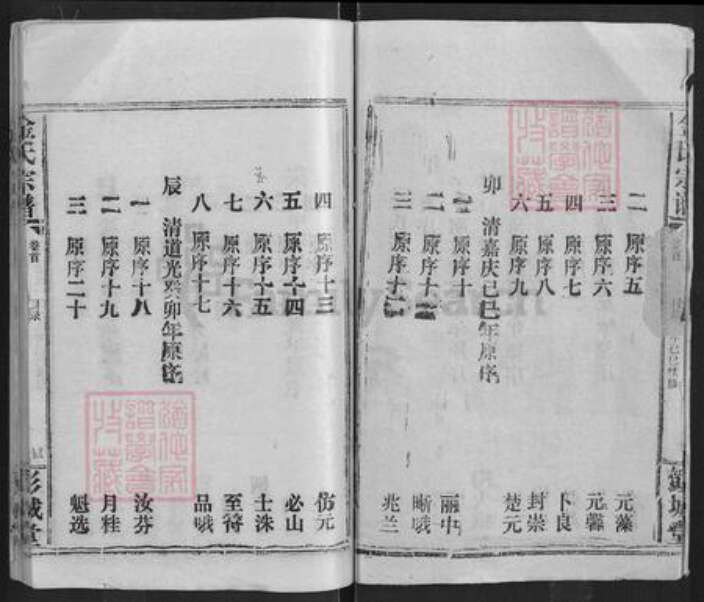 二 原序五 元藻
三 原序六 元馨
四 原序七 卜良
五 原序八 封崇
六 原序九 楚元
卯 清嘉庆己巳年原序
一 原序十 丽中
二 原序十一 晰哦
三 原序十二 兆兰
四 原序十三 仿元
五 原序十四 必山
六 原序十五 士洙
七 原序十六 至符
八 原序十七 品哦
辰 清道光癸卯年原序
一 原序十八 汝芬
二 原序十九 月桂
三 原序二十 魁选
金氏宗譜
卷首
目録
彭城堂